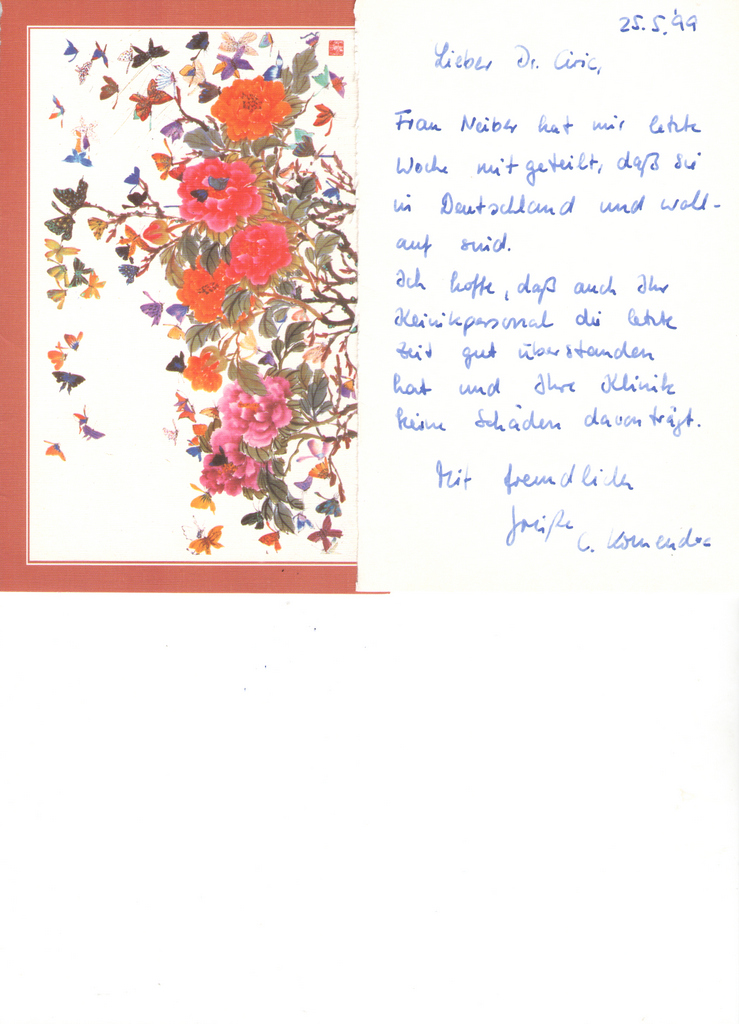 25.5.'99
Lieber Dr. Ciric,
Frau Neiber hat mir letzte
Woche mitgeteilt, daß Sie
in Deutschland und wohl-
auf sind.
Ich hoffe, daß auch Ihr
Klinikpersonal die letzte
Zeit gut überstanden
hat und Ihre Klinik
keine Schäden davonträgt.
Mit freundlichen
Grüße
C.